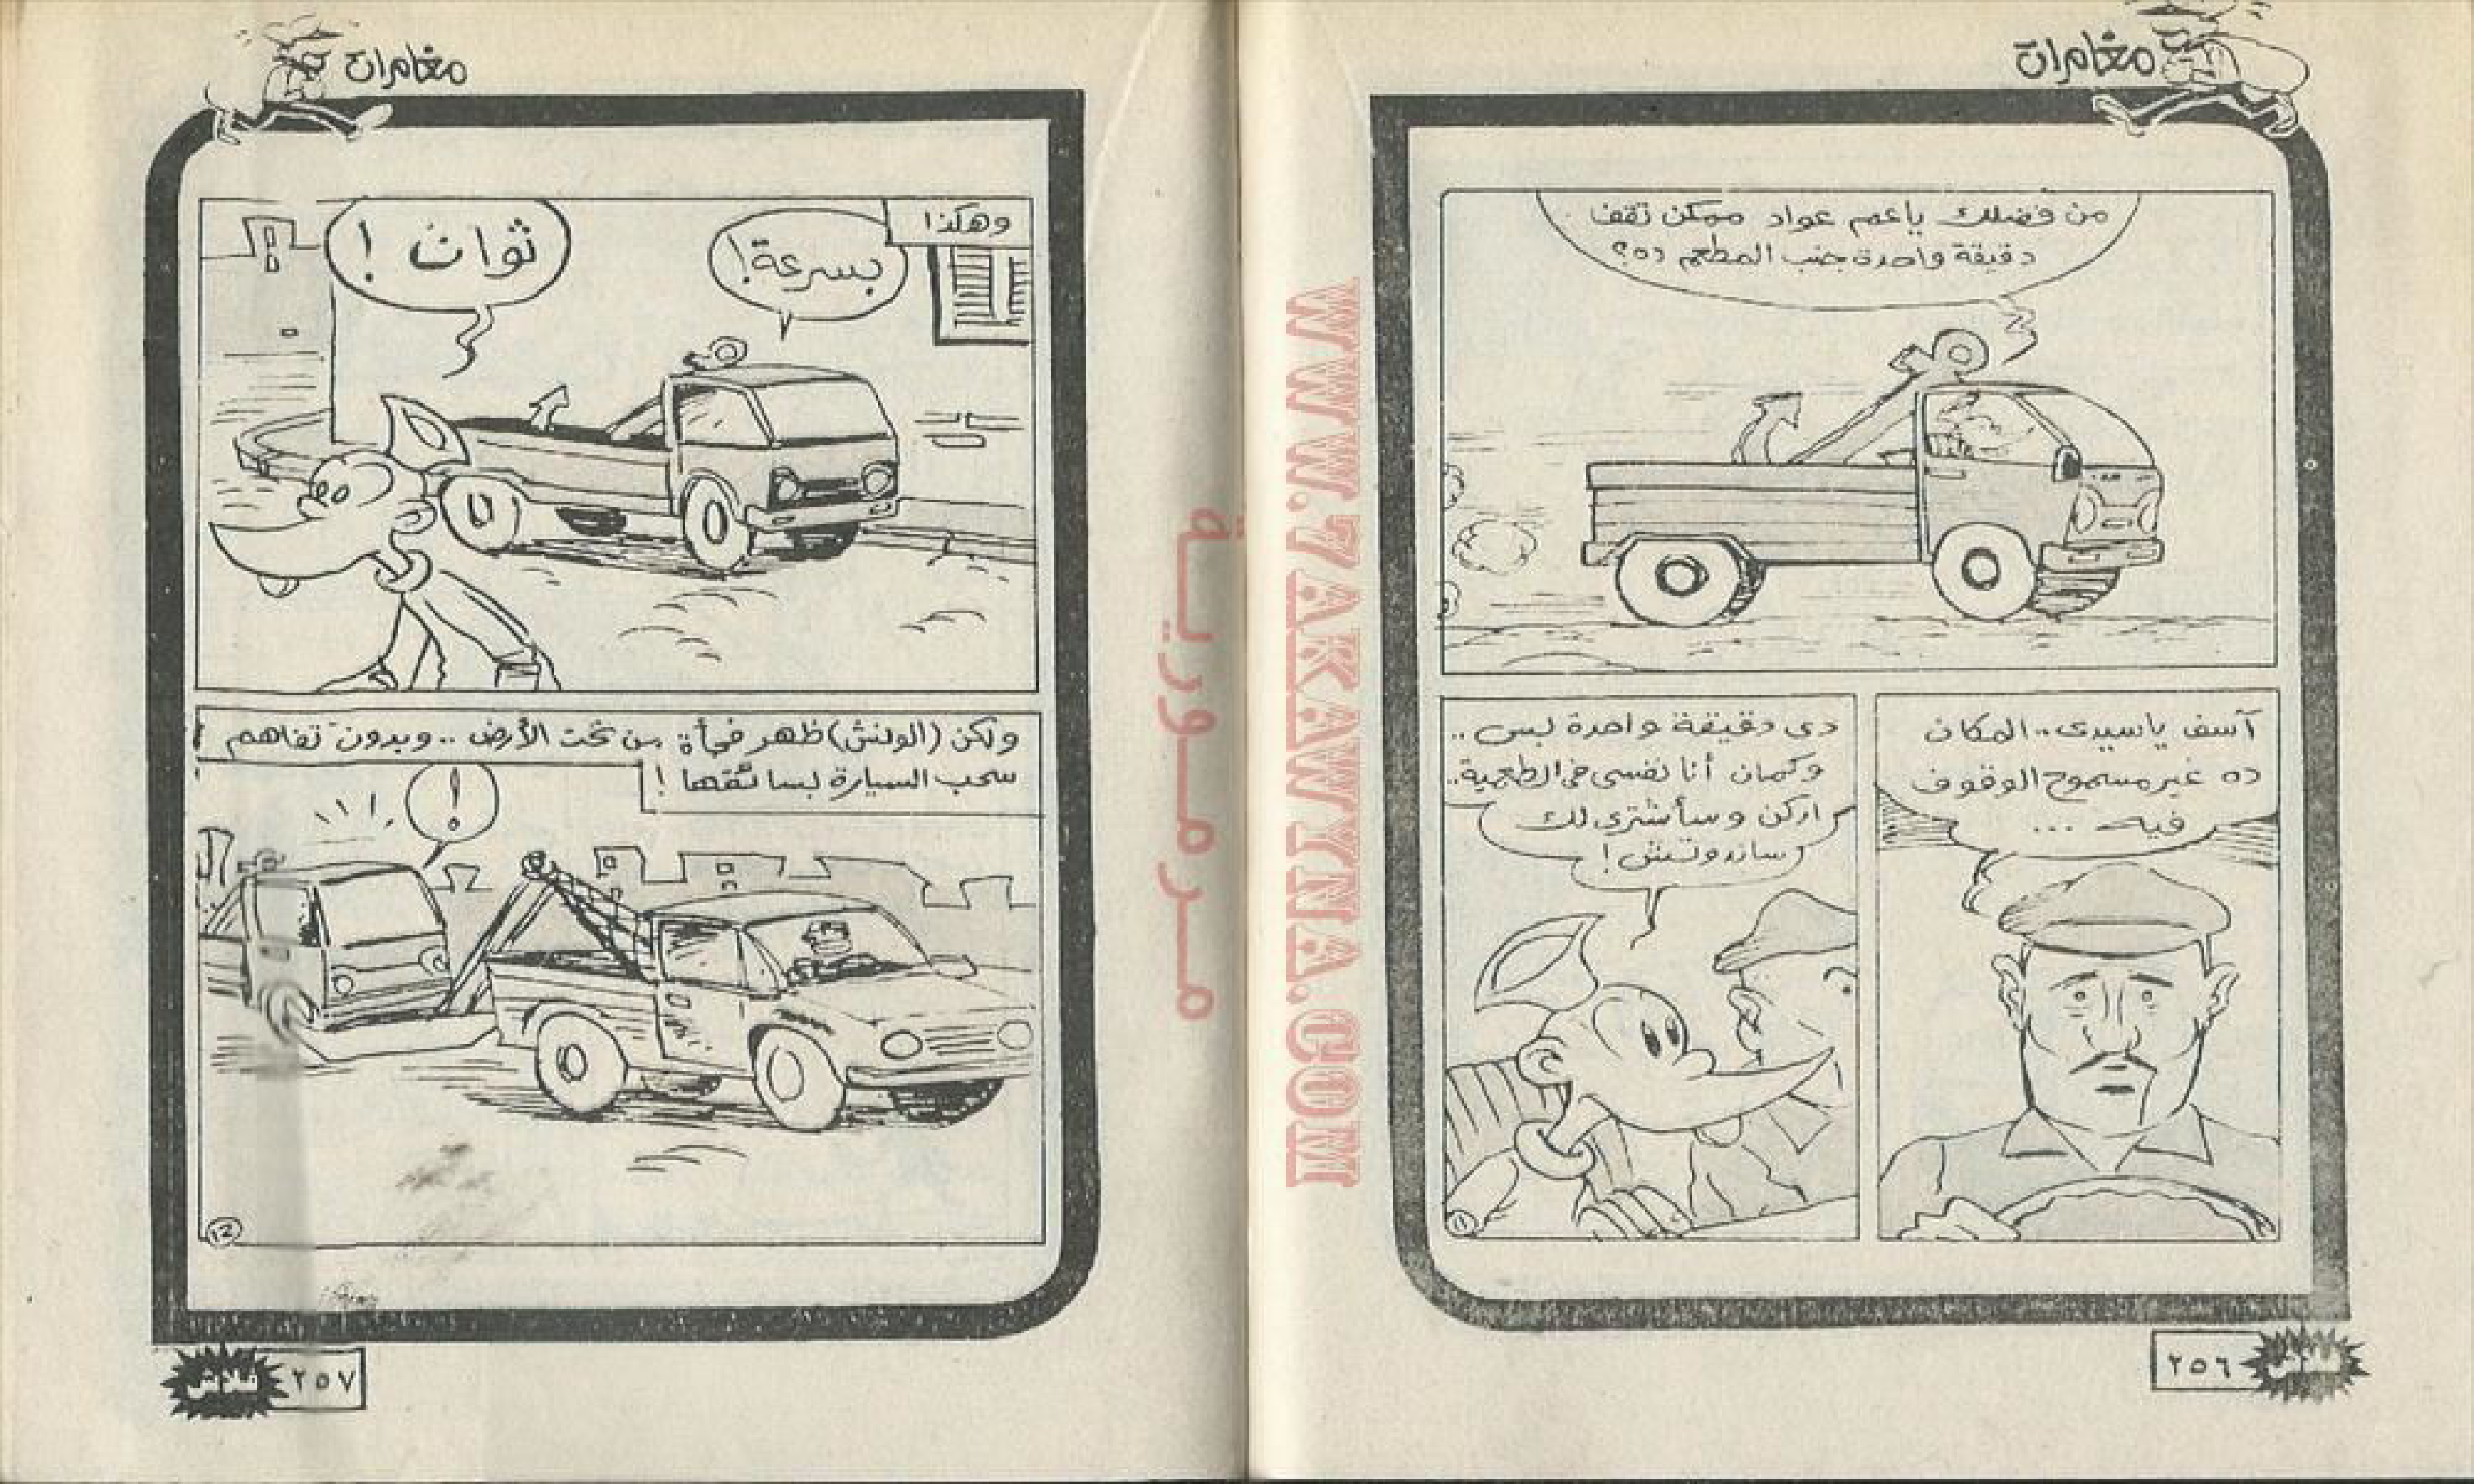 مغامرات
من فضلك ياعم عواد ممكن تقف
دقيقة واحدة جنب المطعم ده؟
آسف ياسيدى.. المكان
ده غير مسموح الوقوف
فيه ...
دى دقيقة واحدة بس ..
وكمان أنا نفسى فى الطعمية..
اركن وسأشترى لك
ساندوتش!
١١
٢٥٦
فلاش
مغامرات
وهكذا
بسرعة!
ثوان !
ولكن (الونش) ظهر فجأة من تحت الأرض .. وبدون تفاهم
سحب السيارة بسائقها !
!
١٢
٢٥٧
فلاش
WWW.7AKAWYNA.COM
مرمورية